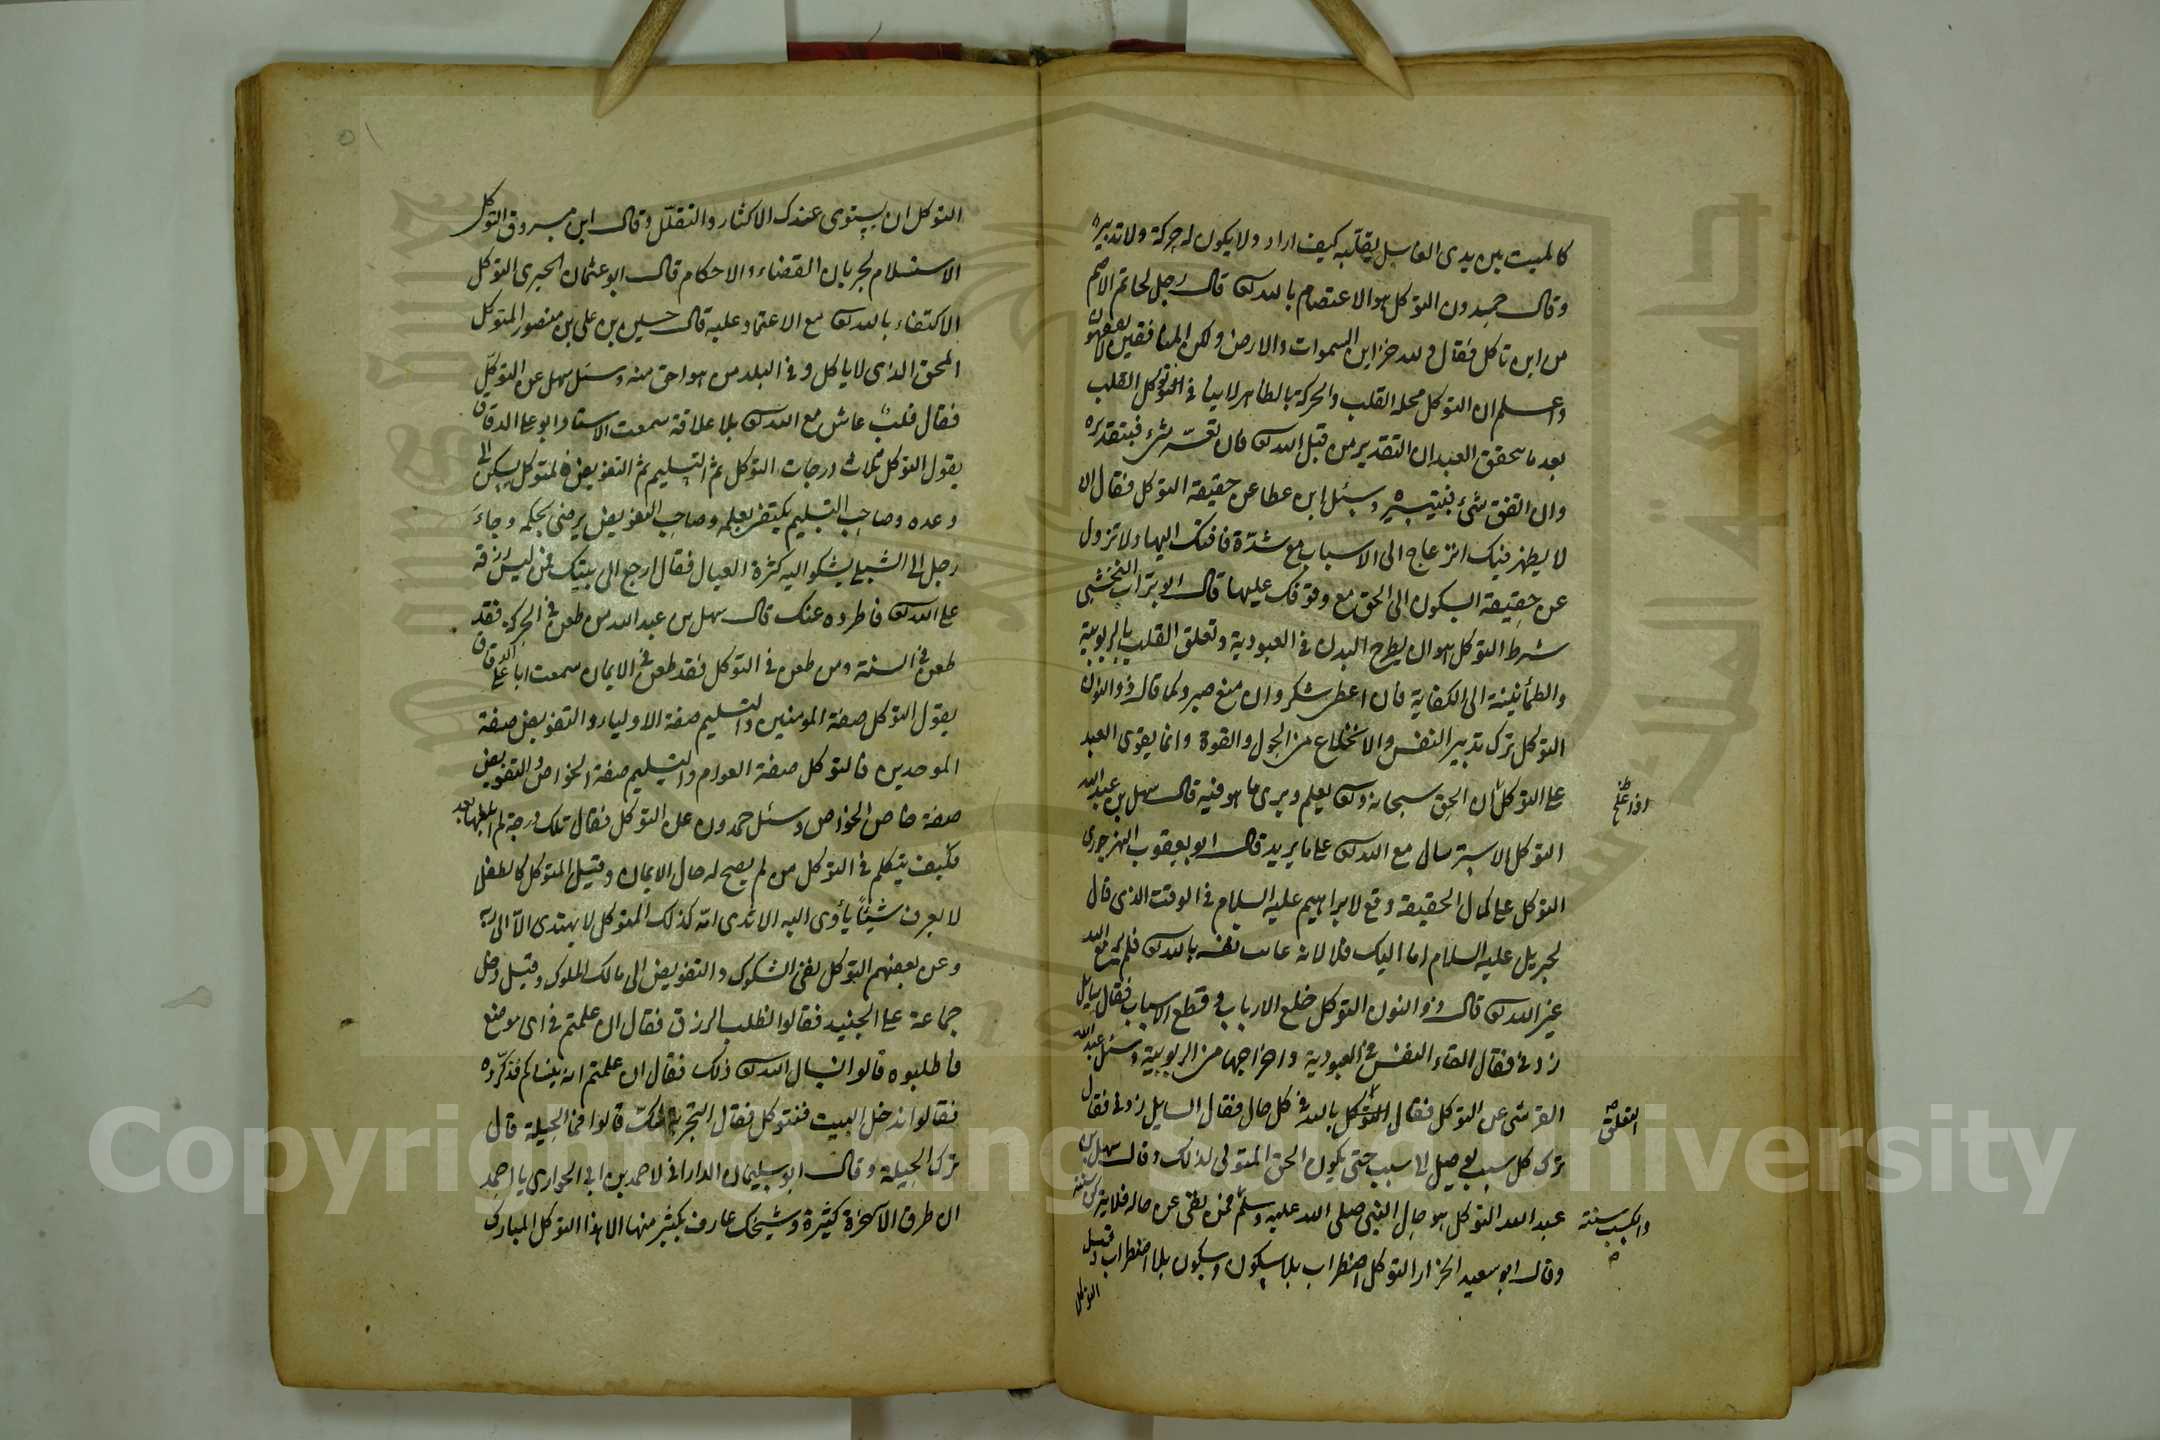 كالميت بين يدى الغاسل يقلبه كيف اراد ولا يكون له حركة ولا تدبيره
وقال حمدون التوكل هو الاعتصام بالله تعالى قال رجل لحاتم الاصم
من اين تاكل فقال ولله خزاين السموات والارض ولكن المنافقين لا يفقهون
واعلم ان التوكل محله القلب والحركة بالظاهر لا ينافى التوكل القلب
بعد ما تحقق العبد ان التقدير من قبل الله تعالى فان تعسر شئ فبتقديره
وان اتفق شئ فبتيسيره وسئل ابن عطا عن حقيقة التوكل فقال ان
لا يظهر فيك انزعاج الى الاسباب مع شدة فاقتك اليها ولا تزول
عن حقيقة السكون الى الحق مع وقوفك عليها قال ابو تراب النخشبى
شرط التوكل هو ان يطرح البدن فى العبودية وتعلق القلب بالربوبية
والطمأنينة الى الكفاية فان اعطى شكر وان منع صبر وكما قال ذو النون
التوكل ترك تدبير النفس والانخلاع من الحول والقوة وانما يقوى العبد
على التوكل ان الحق سبحانه وتعالى يعلم ويرى ما هو فيه قال سهل بن عبد الله
اذا علم
التوكل الاسترسال مع الله تعالى على ما يريد قال ابو يعقوب النهرجورى
التوكل على كمال الحقيقة وقع لابراهيم عليه السلام فى الوقت الذى قال
لجبريل عليه السلام اما اليك فلا لانه غابت نفسه بالله تعالى فلم ير مع الله
غير الله تعالى قال ذو النون التوكل خلع الارباب وقطع الاسباب فقال سايل
زدنى فقال القاء النفس فى العبودية واخراجها من الربوبية وسئل عبد الله
القرشى عن التوكل فقال التوكل بالله فى كل حال فقال السايل زدنى فقال
التعلق
ترك كل سبب يوصل الى سبب حتى يكون الحق المتولى لذلك وقال سهل بن
عبد الله التوكل هو حال النبى صلى الله عليه وسلم فمن بقى عن حاله فلا يتركن سنته
والكسب سنته
وقال ابو سعيد الخزار التوكل اضطراب بلا سكون وسكون بلا اضطراب وقيل
التوكل
التوكل ان يستوى عندك الاكثار والتقلل وقال ابن مسروق التوكل
الاستسلام لجريان القضاء والاحكام قال ابو عثمان الحيرى التوكل
الاكتفاء بالله تعالى مع الاعتماد عليه قال حسين بن على بن منصور المتوكل
المحق الذى لا ياكل وفى البلد من هو احق منه وسئل سهل عن التوكل
فقال قلب عاش مع الله تعالى بلا علاقة سمعت الاستاد ابو على الدقاق
يقول التوكل ثلاث درجات التوكل ثم التسليم ثم التفويض فالمتوكل يسكن الى
وعده وصاحب التسليم يكتفى بعلمه وصاحب التفويض يرضى بحكمه وجاء
رجل الى الشبلى يشكو اليه كثرة العيال فقال ارجع الى بيتك فمن ليس رزقه
على الله تعالى فاطرده عنك قال سهل بن عبد الله من طعن فى الحركة فقد
طعن فى السنة ومن طعن فى التوكل فقد طعن فى الايمان سمعت ابا على الدقاق
يقول التوكل صفة المومنين والتسليم صفة الاولياء والتفويض صفة
الموحدين فالتوكل صفة العوام والتسليم صفة الخواص والتفويض
صفة خاص الخواص وسئل حمدون عن التوكل فقال تلك درجة لم ابلغها بعد
فكيف يتكلم فى التوكل من لم يصح له حال الايمان وقيل المتوكل كالطفل
لا يعرف شيئا يأوى اليه الا ثدى امه كذلك المتوكل لا يهتدى الا الى ربه
وعن بعضهم التوكل نفى الشكوك والتفويض الى مالك الملوك وقيل دخل
جماعة على الجنيد فقالوا نطلب الرزق فقال ان علمتم فى اى موضع
فاطلبوه قالوا نسال الله تعالى ذلك فقال ان علمتم انه ينساكم فذكروه
فقالوا ندخل البيت فنتوكل فقال التجربة شك قالوا فما الحيلة قال
ترك الحيلة وقال ابو سليمان الدارانى لاحمد بن ابى الحوارى يا احمد
ان طرق الآخرة كثيرة وشيخك عارف بكثير منها الا هذا التوكل المبارك
Copyright © King Saud University